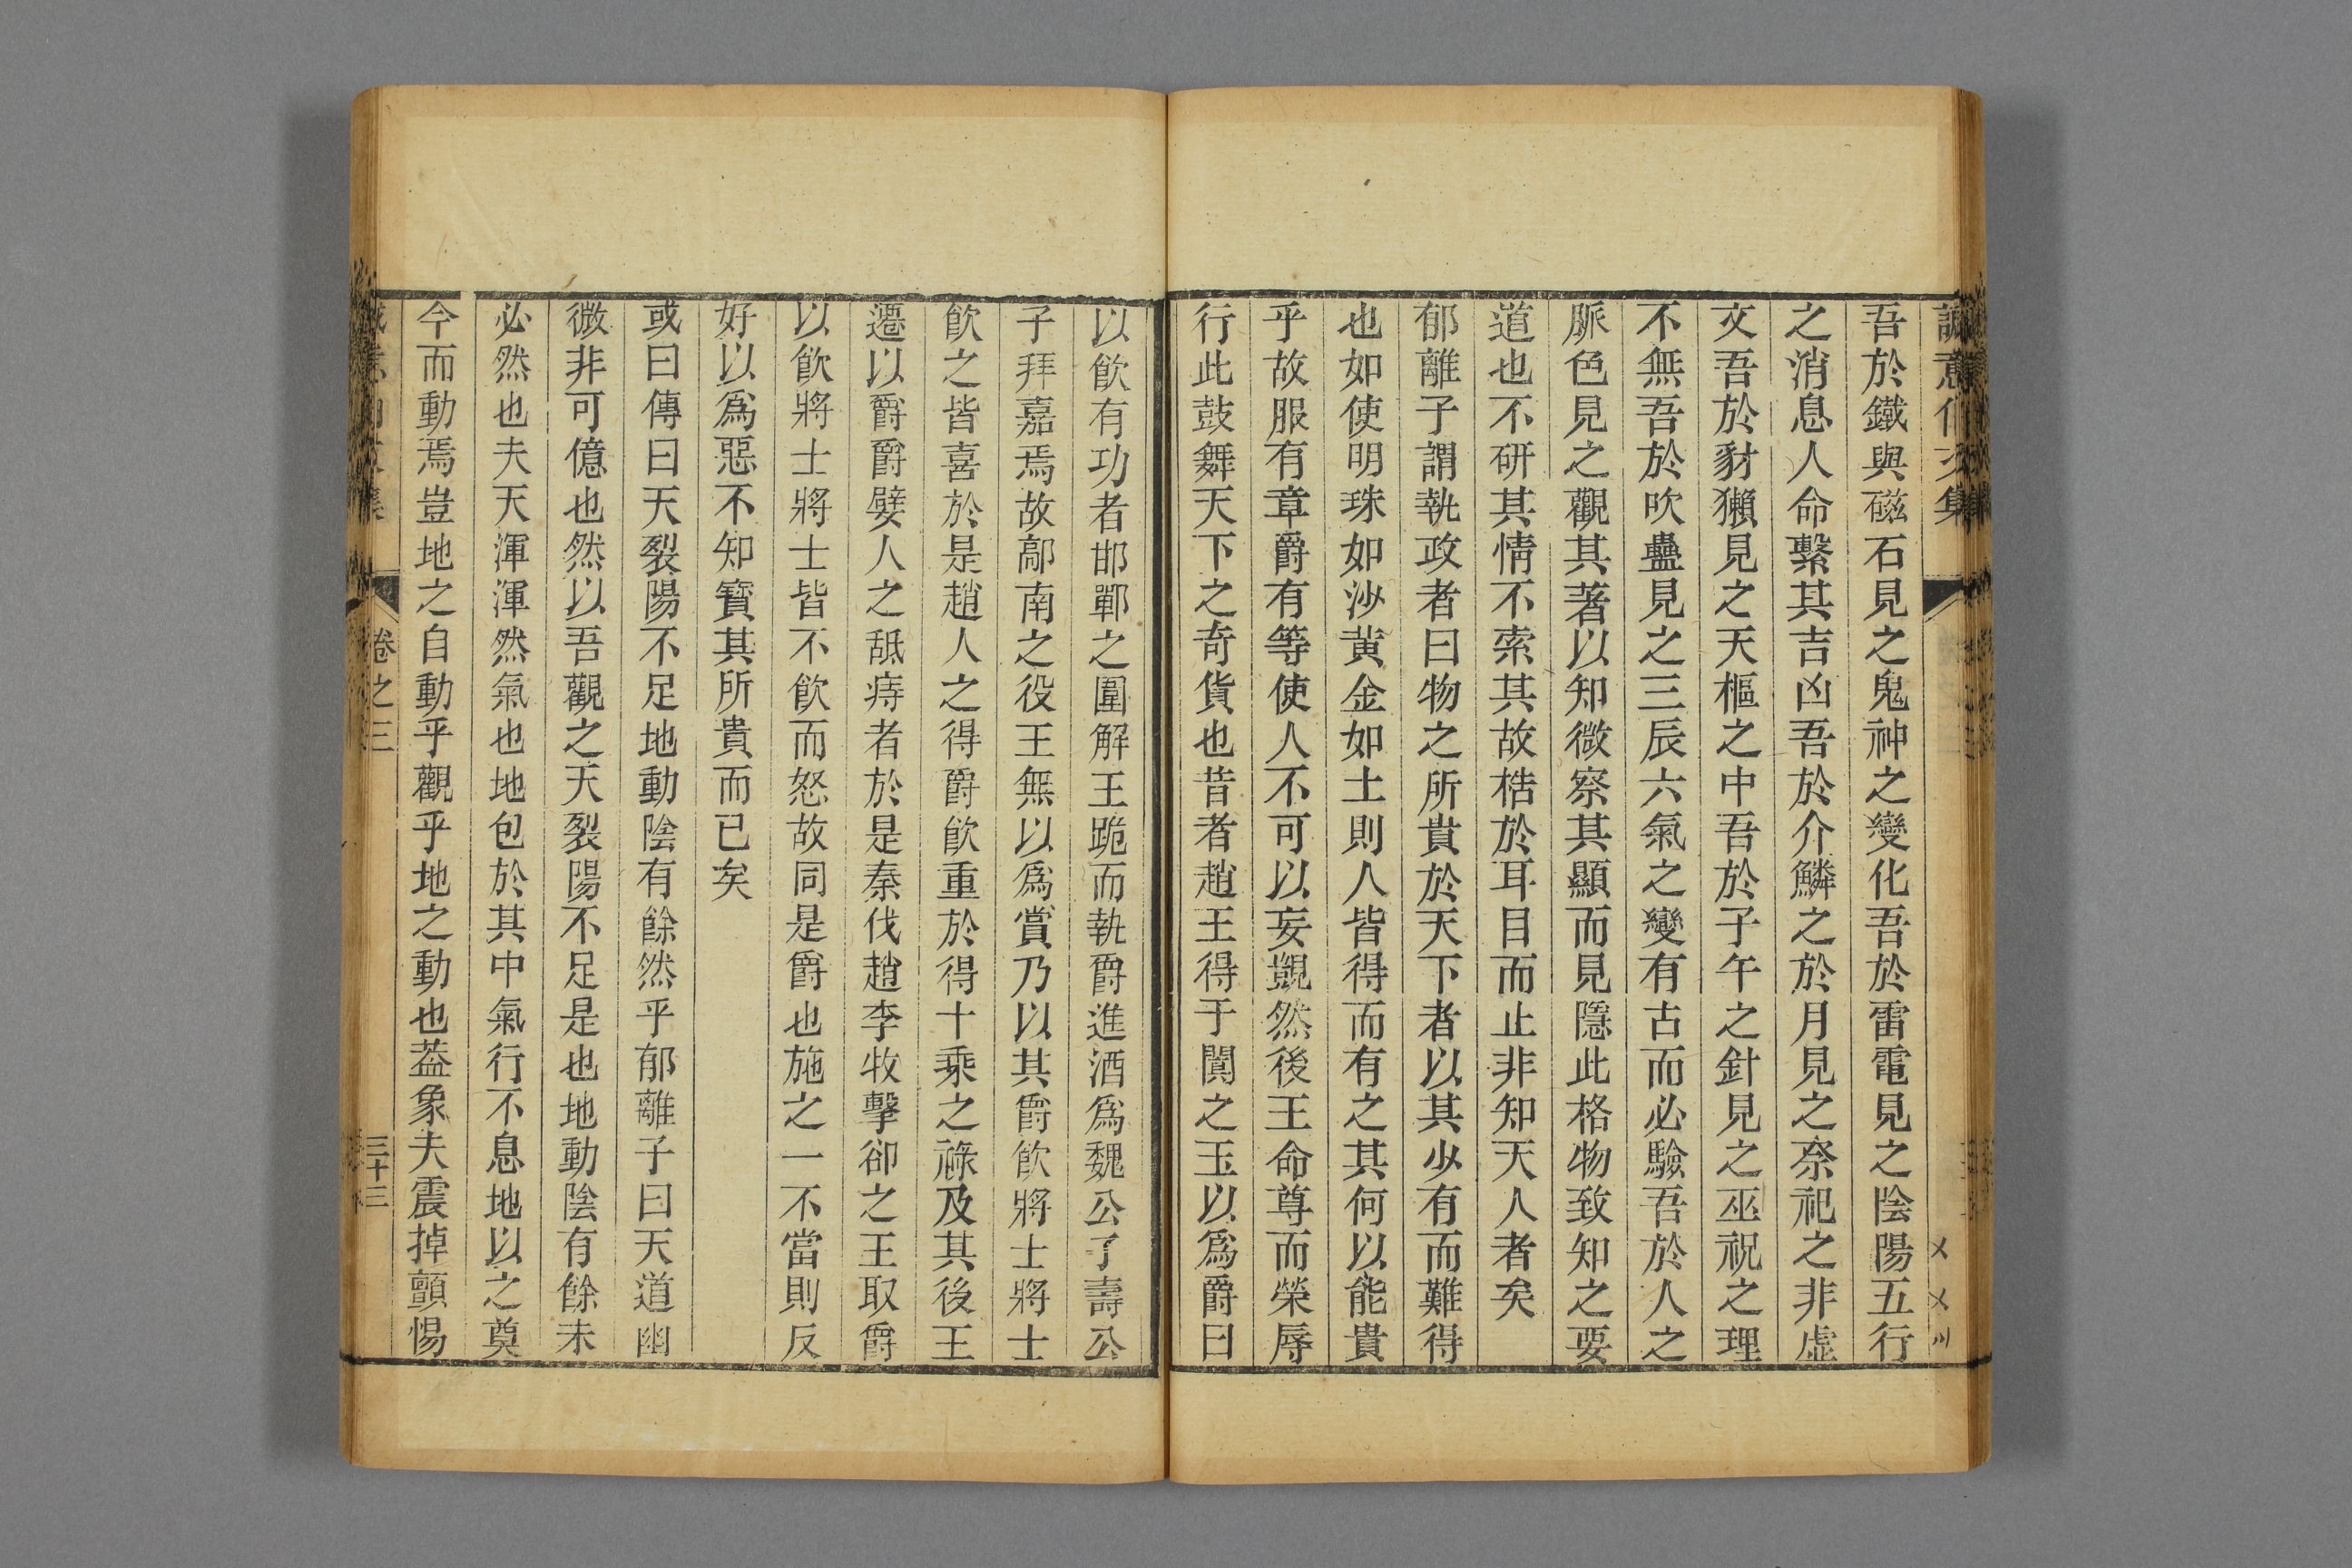 吾於鐵與磁石見之鬼神之變化吾於雷電見之陰陽五行
之消息人命繫其吉凶吾於介鱗之於月見之祭祀之非虛
文吾於豺獺見之天樞之中吾於子午之針見之巫祝之理
不無吾於吹蠱見之三辰六氣之變有古而必驗吾於人之
脈色見之觀其著以知微察其顯而見隱此格物致知之要
道也不研其情不索其故梏於耳目而止非知天人者矣
郁離子謂執政者曰物之所貴於天下者以其少有而難得
也如使明珠如沙黃金如土則人皆得而有之其何以能貴
乎故服有章爵有等使人不可以妄覬然後王命尊而榮辱
行此鼓舞天下之奇貨也昔者趙王得于闐之玉以爲爵曰
以飲有功者邯鄲之圍解王跪而執爵進酒爲魏公子壽公
子拜嘉焉故鄗南之役王無以爲賞乃以其爵飲將士將士
飲之皆喜於是趙人之得爵飲重於得十乘之祿及其後王
遷以爵爵嬖人之舐痔者於是秦伐趙李牧擊卻之王取爵
以飲將士將士皆不飲而怒故同是爵也施之一不當則反
好以爲惡不知寶其所貴而已矣
或曰傳曰天裂陽不足地動陰有餘然乎郁離子曰天道幽
微非可億也然以吾觀之天裂陽不足是也地動陰有餘未
必然也夫天渾渾然氣也地包於其中氣行不息地以之奠
今而動焉豈地之自動乎觀乎地之動也葢象夫震掉顫惕
卷之三
三十三